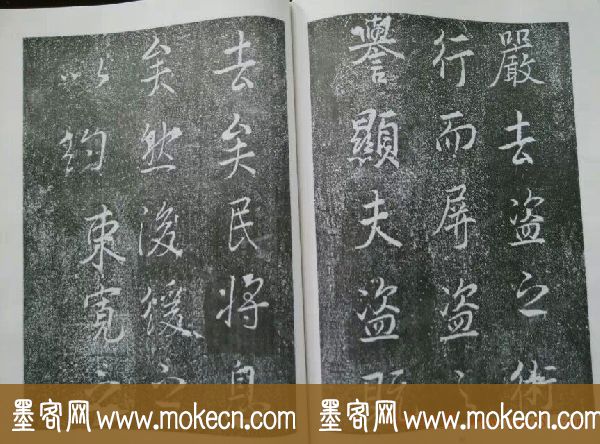 嚴去盜之術
行而屏盜之
譽顯夫盜
去矣民將
矣然後緩之
以約束寬之
墨客网 www.mokecn.com 墨客网 www.mokecn.com